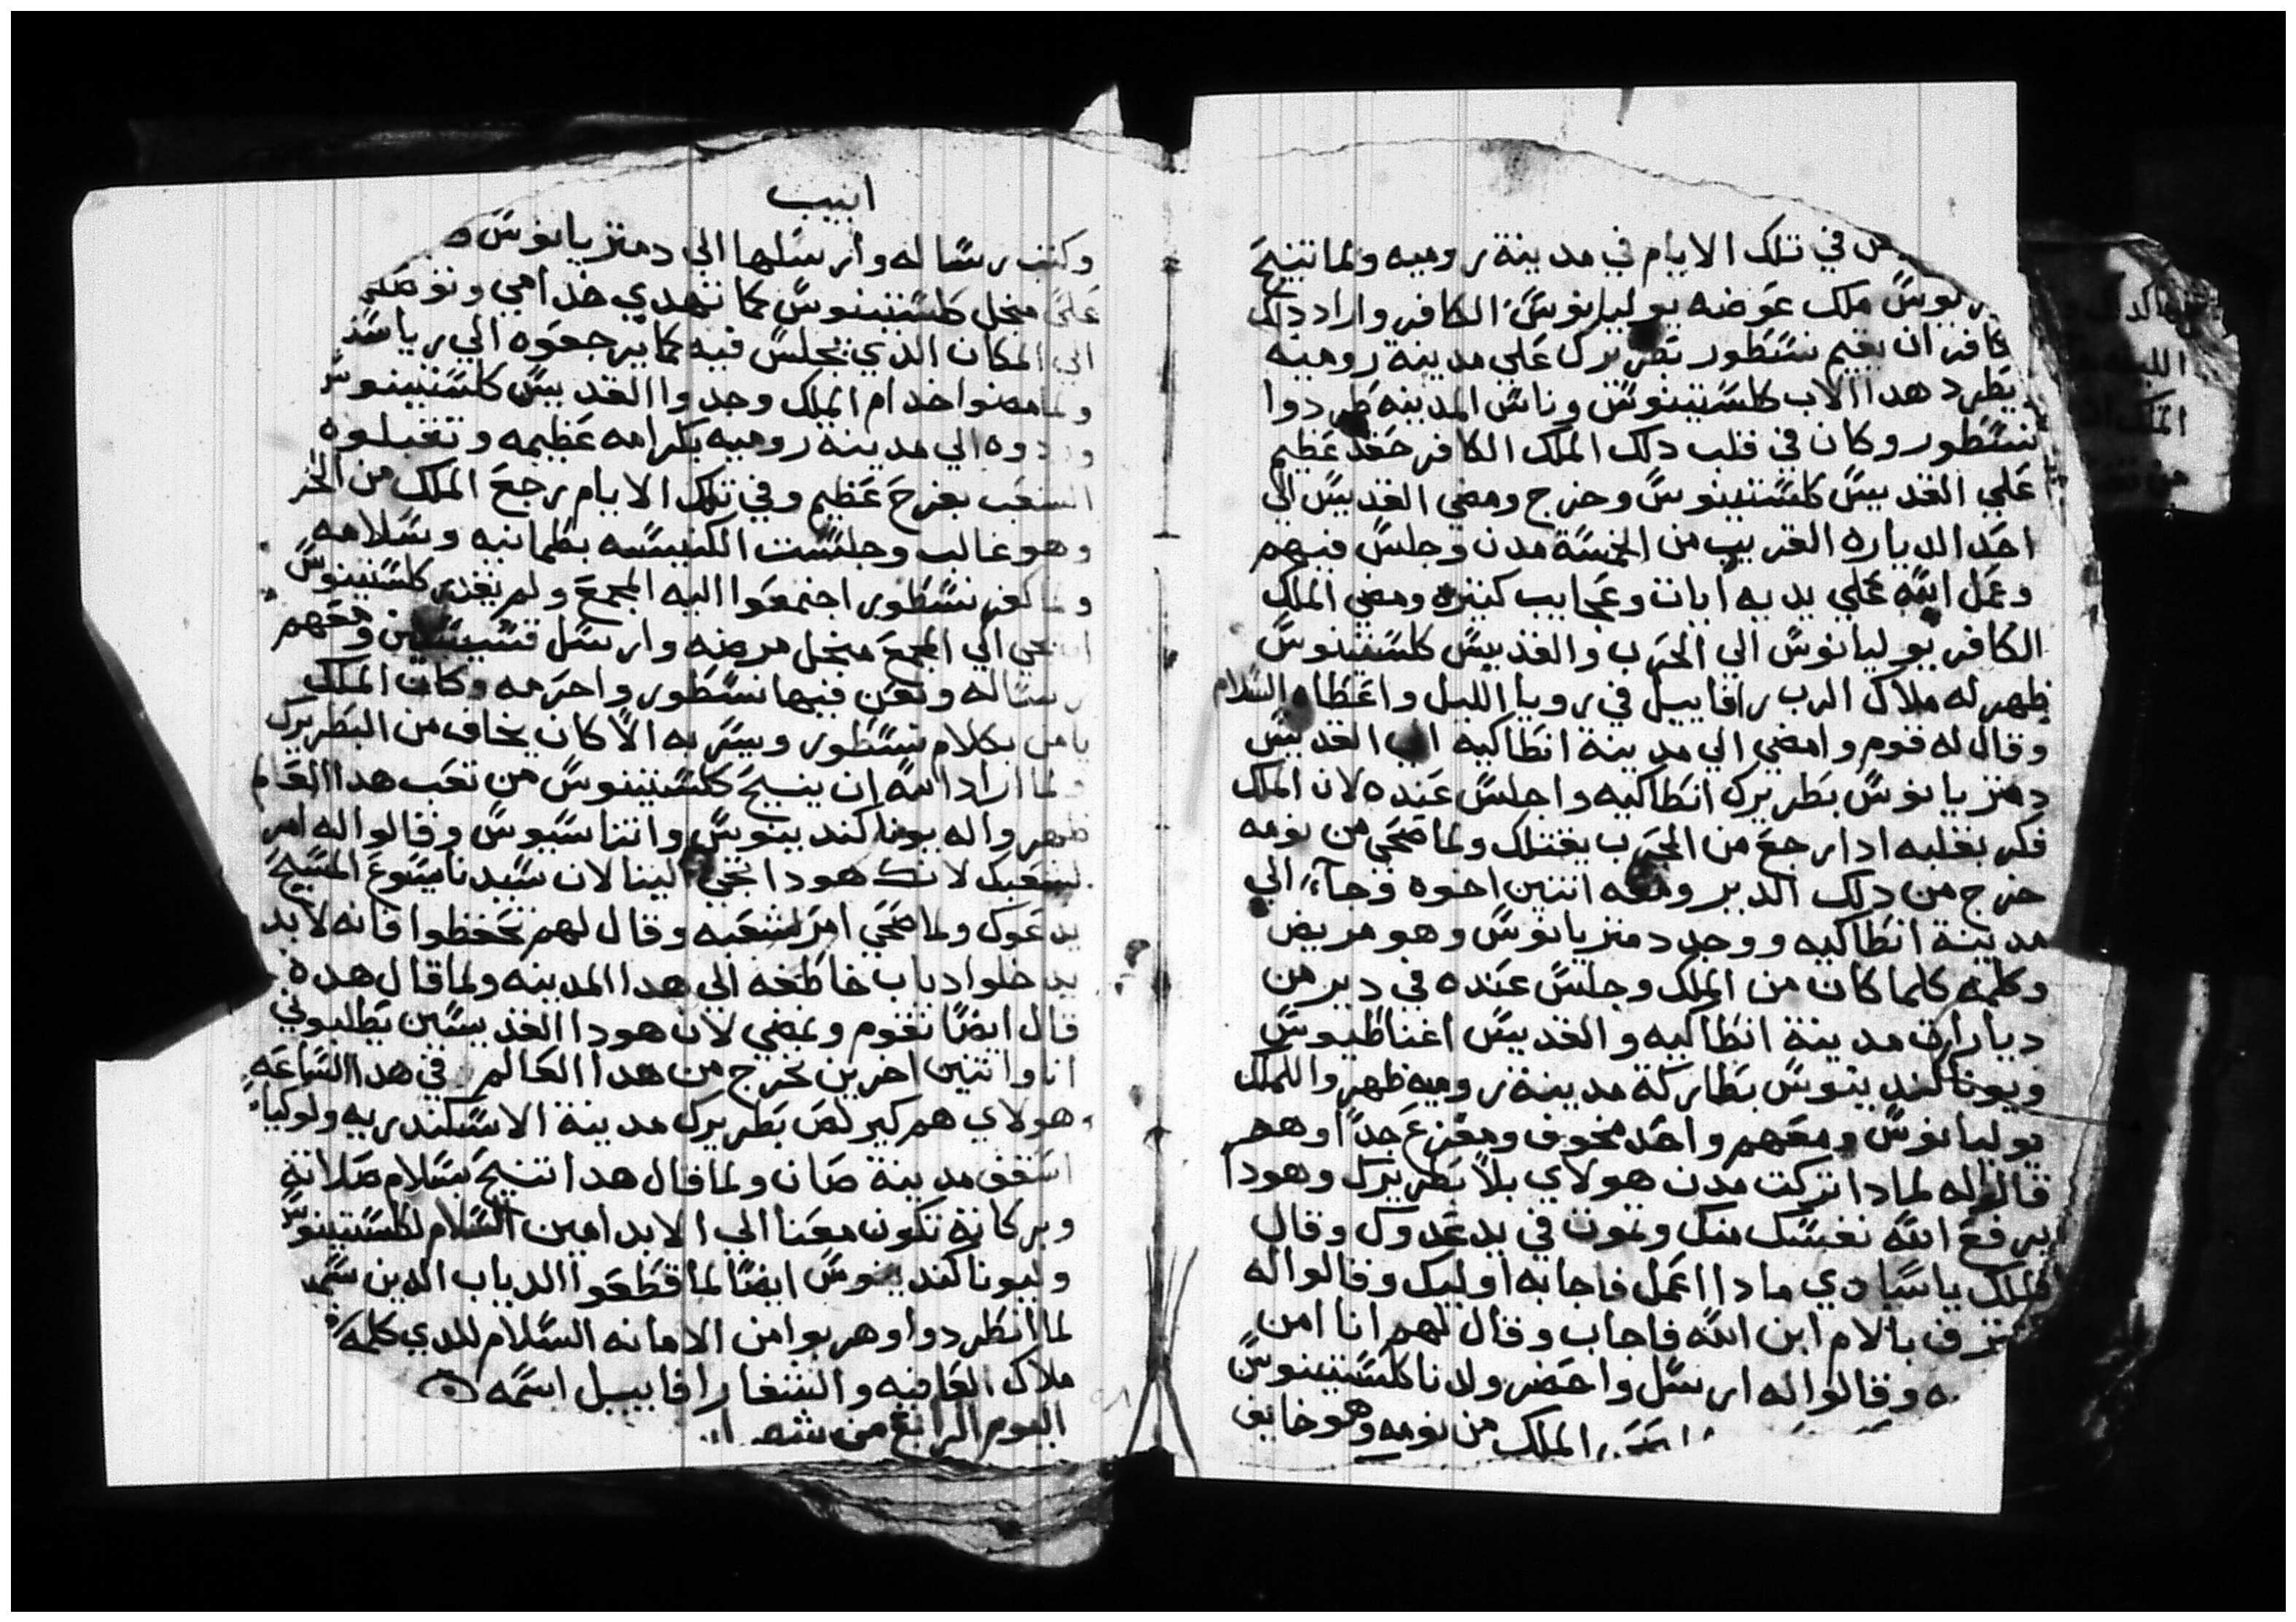 في تلك الايام في مدينة روميه ولما تنيح
ملك عوضه يوليانوس الكافر واراد دلك
كافر ان يقيم نسطور بطريرك علي مدينة روميه
يطرد هدا الاب كلستينوس وناس المدينه طردوا
نسطور وكان في قلب دلك الملك الكافر حقد عظيم
علي القديس كلستينوس وخرج ومضي القديس الي
احد الدياره القريب من الخمسة مدن وجلس فيهم
وعمل الله علي يديه ايات وعجايب كتيره ومضي الملك
الكافر يوليانوس الي الحرب والقديس كلستينوس
ظهر له ملاك الرب رافاييل في رويا الليل واعطاه السلام
وقال له قوم وامضي الي مدينة انطاكيه اب القديس
دمتريانوس بطريرك انطاكيه واجلس عنده لان الملك
فكر بقلبه ادا رجع من الحرب يقتلك ولما ضحي من نومه
خرج من دلك الدير ومعه اتنين اخوه وجآء الي
مدينة انطاكيه ووجد دمتريانوس وهو مريض
وكلمه كلما كان من الملك وجلس عنده في دير من
ديارات مدينة انطاكيه والقديس اغناطيوس
ويونا كندينوس بطاركة مدينة روميه ظهروا للملك
يوليانوس ومعهم واحد مخوف ومفزع جداً وهم
قالوا له لمادا تركت مدن هولاي بلا بطريرك وهودا
يرفع الله نفسك منك وتموت في يد عدوك وقال
الملك ياسادي مادا اعمل فاجابه اوليك وقالوا له
بالام ابن الله فاجاب وقال لهم انا امن
وقالوا له ارسل واحضر ولدنا كلستينوس
الملك من نومه وهو خايف
ابيب
وكتب رساله وارسلها الي دمتريانوس
علي منجل كلستينوس كما تهدي خدامي
الي المكان الدي يجلس فيه كما يرجعوه الي
ولما مضوا خدام الملك وجدوا القديس كلستينوس
وردوه الي مدينة روميه بكرامه عظيمه وتقبلوه
الشعب بفرح عظيم وفي تلك الايام رجع الملك من
وهو غالب وجلست الكنيسه بطمانيه وسلامه
ولما كفر نسطور اجتمعوا اليه المجمع ولم يقدر كلستينوس
الي المجمع منجل مرضه وارسل قسيسين ومعهم
رساله ونعن فيها نسطور واحرمه وكان الملك
بكلام نسطور ويسر به الا كان يخاف من البطريرك
ولما اراد الله ان ينيح كلستينوس من تعب هدا العالم
ظهروا له يونا كندينوس واتناسيوس وقالوا له امر
لشعبك لانك هودا تجي الينا لان سيدنا يسوع المسيح
يدعوك ولما ضحي امر لشعبه وقال لهم تحفظوا فانه لابد
يدخلوا دياب خاطفه الي هدا المدينه ولما قال هده
قال ايضا نقوم ونمضي لان هودا القديسين يطلبوني
انا واتنين اخرين نخرج من هدا العالم في هدا الساعه
هولاي هم كيرلص بطريرك مدينة الاسكندريه ولوكيا
اسقف مدينة صان ولما قال هدا تنيح بسلام صلاته
وبركاته تكون معنا الي الابد امين السلام لكلستينوس
وليونا كندينوس ايضا لما قطعوا الدياب الدين
لما انطردوا وهربوا من الامانه السلام للدي كلمه
ملاك العافيه والشفا رافاييل اسمه
اليوم الرابع من شهر